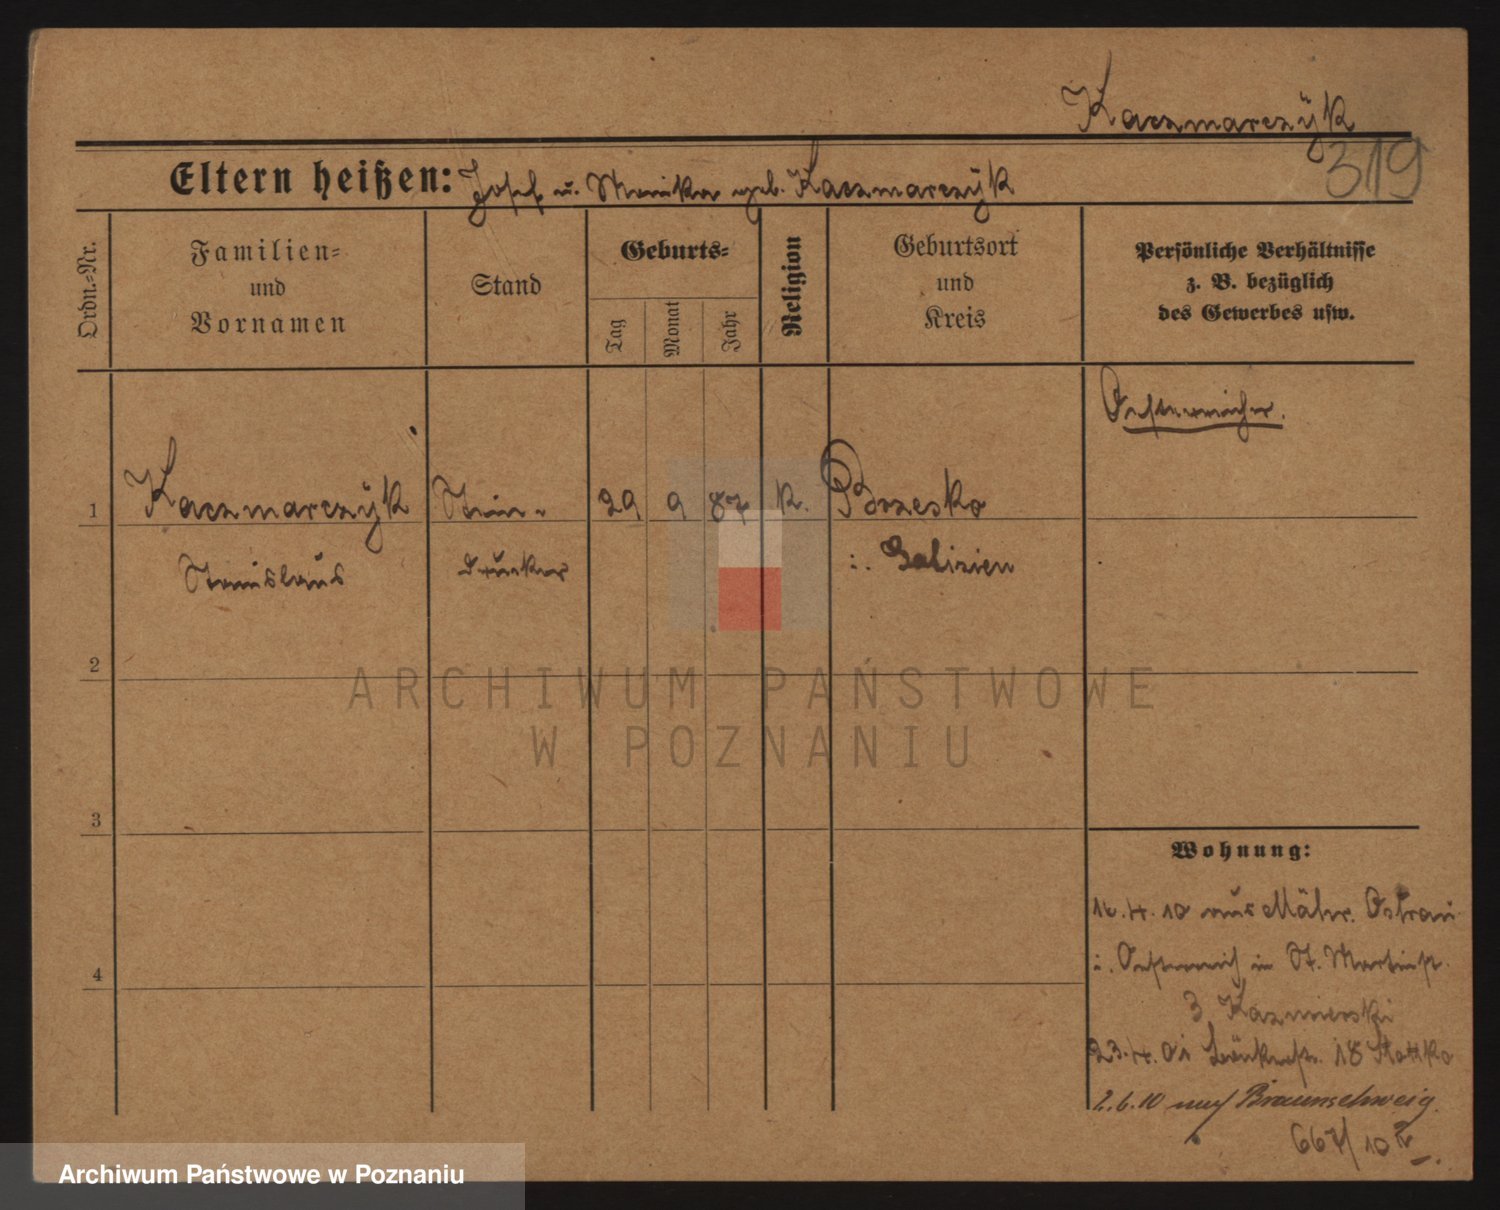 Kaczmarczÿk
319
Eltern heißen: Josef u. Monika geb. Kaczmarczÿk
Ordn.-Nr.
Familien-
und
Vornamen
Stand
Geburts-
Tag
Monat
Jahr
Religion
Geburtsort
und
Kreis
Persönliche Verhältnisse
z. B. bezüglich
des Gewerbes usw.
Oesterreicher.
1 Kaczmarczÿk Stein- 29 9 87 K. Brzesko
Stanislaus drucker i. Galizien
2
ARCHIWUM PAŃSTWOWE
W POZNANIU
3
Wohnung:
16.4.10 aus Mähr. Ostrau
4
i. Oesterreich in St. Martinstr.
3 Kazmierski
23.4. 18
2.6.10 auf Braunschweig
667/10
Archiwum Państwowe w Poznaniu